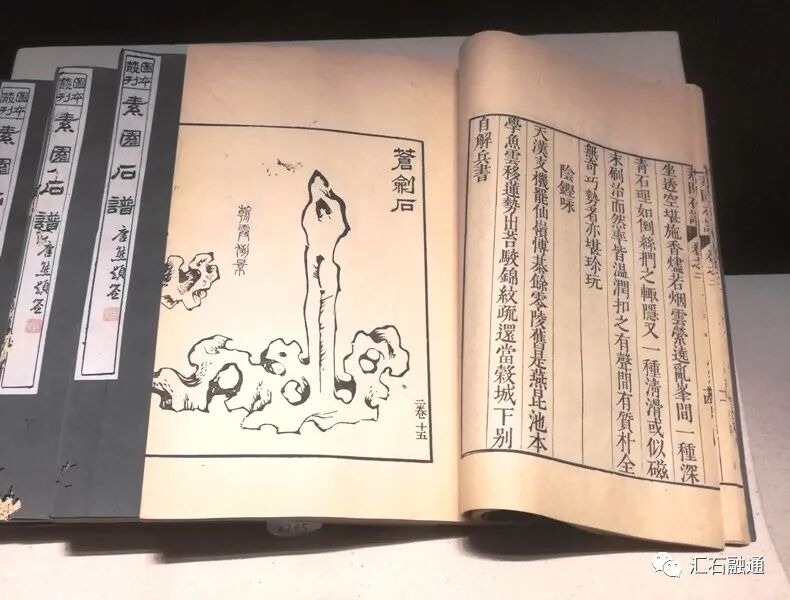 坐透空堪施香燼若烟雲縈遶亂峯間一種深
青石理如倒絲捫之輙隱又一種淸滑或似磁
末刷治而然率皆温潤扣之有聲間有質朴全
無竒巧勢者亦堪珍玩
陰鏗咏
天漢支機罷仙嶺博棊餘零陵舊是燕昆池本
學魚雲移蓮勢出苔駁錦紋疏還當榖城下別
自解兵書
蒼劍石
二卷十五
圖本叢刊
素園石譜
唐熊題签
圖本叢刊
素園石譜
唐熊題签
圖本叢刊
素園石
汇石融通